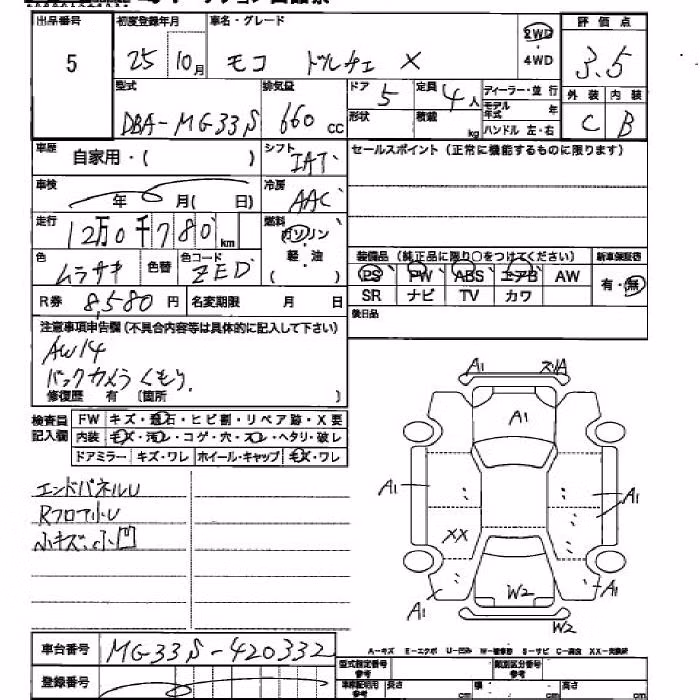 出品番号 初度登録年月 車名・グレード 2WD 評価点
5 25 10月 モコ ドルチェ X ・4WD 3.5
型式 排気量 ドア 5 定員 4人 ディーラー・並行 外装 内装
モデル年式 年
DBA-MG33S 660cc 形状 積載 kg ハンドル 左・右 C B
車歴 自家用・( ) シフト IAT セールスポイント(正常に機能するものに限ります)
車検 年 月( 日) 冷房 AAC
走行 12万0千780km 燃料 ガソリン
軽・油
( )
装備品(純正品に限り○をつけてください) 新車保証書
色 ムラサキ 色替 色コード ZED PS PW ABS エアB AW 有・無
R券 8,580円 名変期限 月 日 SR ナビ TV カワ
注意事項申告欄(不具合内容等は具体的に記入して下さい) 後日品
AW14
バックカメラくもり.
修復歴 有 〔箇所 〕
検査員記入欄 FW キズ・飛石・ヒビ割・リペア跡・X要
内装 キズ・汚レ・コゲ・穴・スレ・ヘタリ・破レ
ドアミラー キズ・ワレ ホイール・キャップ キズ・ワレ
エンドパネルU
Rフロア小U
小キズ、小凹
A1 A1
A1 A1 A1
XX
A1 W2 A1
W2
A-キズ E-エクボ U-凹み W-補修跡 S-サビ C-腐食 XX-交換済
車台番号 MG33S-420332
登録番号
型式指定番号 参考 類別区分番号 参考
長さ cm 幅 cm 高さ cm